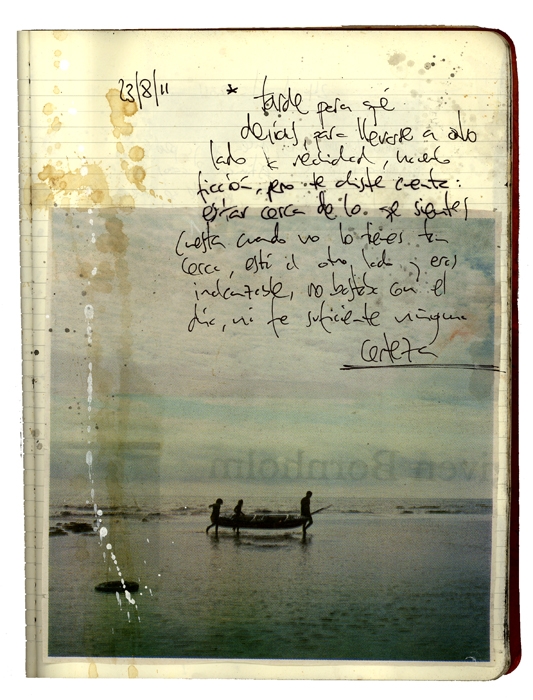 23/8/11
* tarde para qé
decías, para llevarse a otro
lado la realidad, hacerlo
ficción, pero te diste cuenta:
estar cerca de lo qe sientes
cuesta cuando no lo tienes tan
cerca, está al otro lado y eras
inalcanzable, no bastaba con el
día, ni fe suficiente ninguna
certeza
iven Bornholm